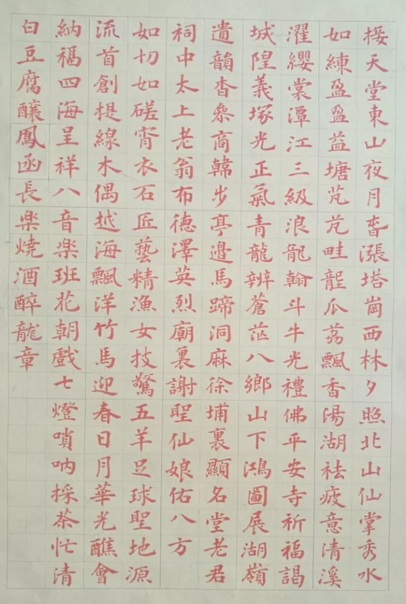 天堂東山夜月旾漲塔崗西林夕照北山仙掌秀水
如練盈盈益塘芃芃畦龍瓜荔飄香湯湖祛疲意清溪
濯纓棠潭江三級浪龍翰斗牛光禮佛平安寺祈福謁
城隍義塚光正氣青龍辨蒼茫八鄉山下鴻圖展湖嶺
遺韻商韓步亭邊馬蹄洞麻徐埔裏顯名堂老君
祠中太上老翁布德澤英烈廟裏謝聖仙娘佑八方
如切如磋宵衣石匠藝精漁女技驚五羊足球聖地源
流首創提線木偶越海飄洋竹馬迎春日月華光醮會
納福四海呈祥八音樂班花朝戲七燈嗩吶採茶忙清
白豆腐釀鳳函長樂燒酒醉龍章